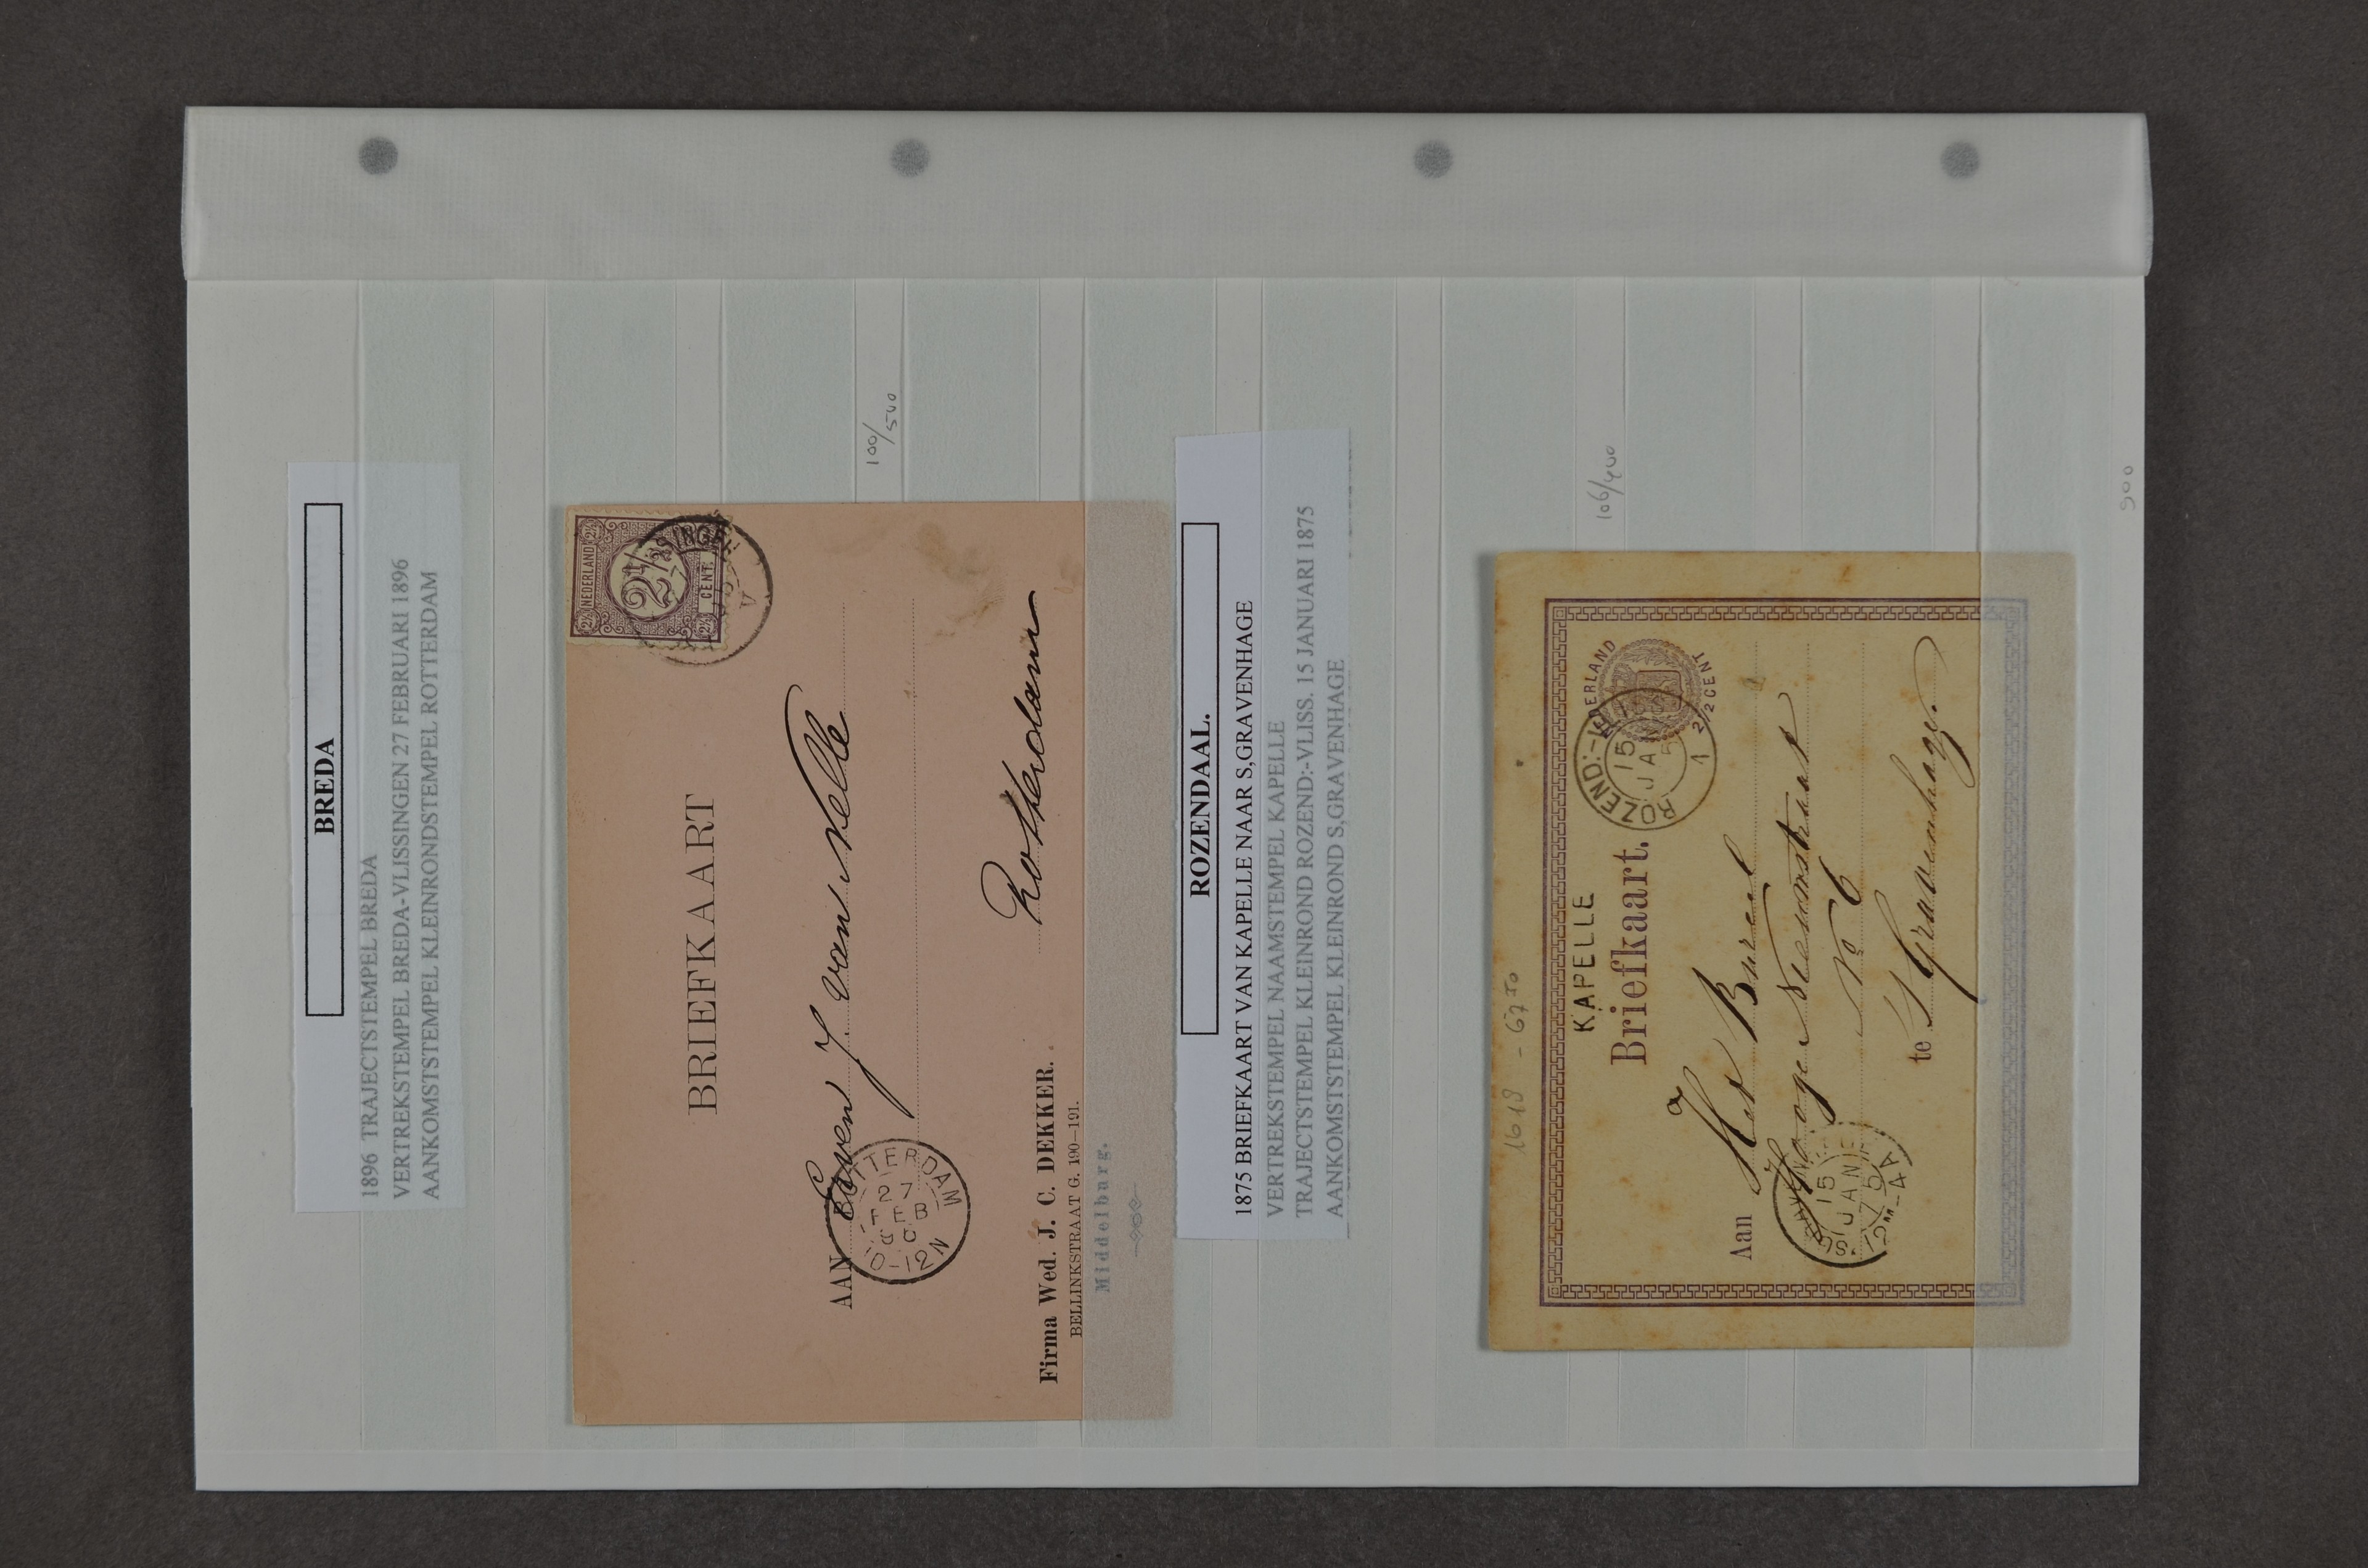 BREDA
1896 TRAJECTSTEMPEL BREDA
VERTREKSTEMPEL BREDA-VLISSINGEN 27 FEBRUARI 1896
AANKOMSTSTEMPEL KLEINRONDSTEMPEL ROTTERDAM
NEDERLAND
2½
2½
2½
CENT.
2½
SINGEN
V
BRIEFKAART
AAN
J. van Nelle
Rotterdam
ROTTERDAM
27
FEB
12N
Firma Wed. J. C. DEKKER.
BELLINKSTRAAT G. 190—191.
Middelburg.
100/500
ROZENDAAL.
1875 BRIEFKAART VAN KAPELLE NAAR S,GRAVENHAGE
VERTREKSTEMPEL NAAMSTEMPEL KAPELLE
TRAJECTSTEMPEL KLEINROND ROZEND:-VLISS. 15 JANUARI 1875
AANKOMSTSTEMPEL KLEINROND S,GRAVENHAGE
106/400
1619 - 6750
KAPELLE
Briefkaart.
NEDERLAND
2½ CENT
ROZEND:-
15
JA
1
Aan
Hooge Nieuwstraat
No 6
te 's Gravenhage.
15
JAN
75
12M-4A
900